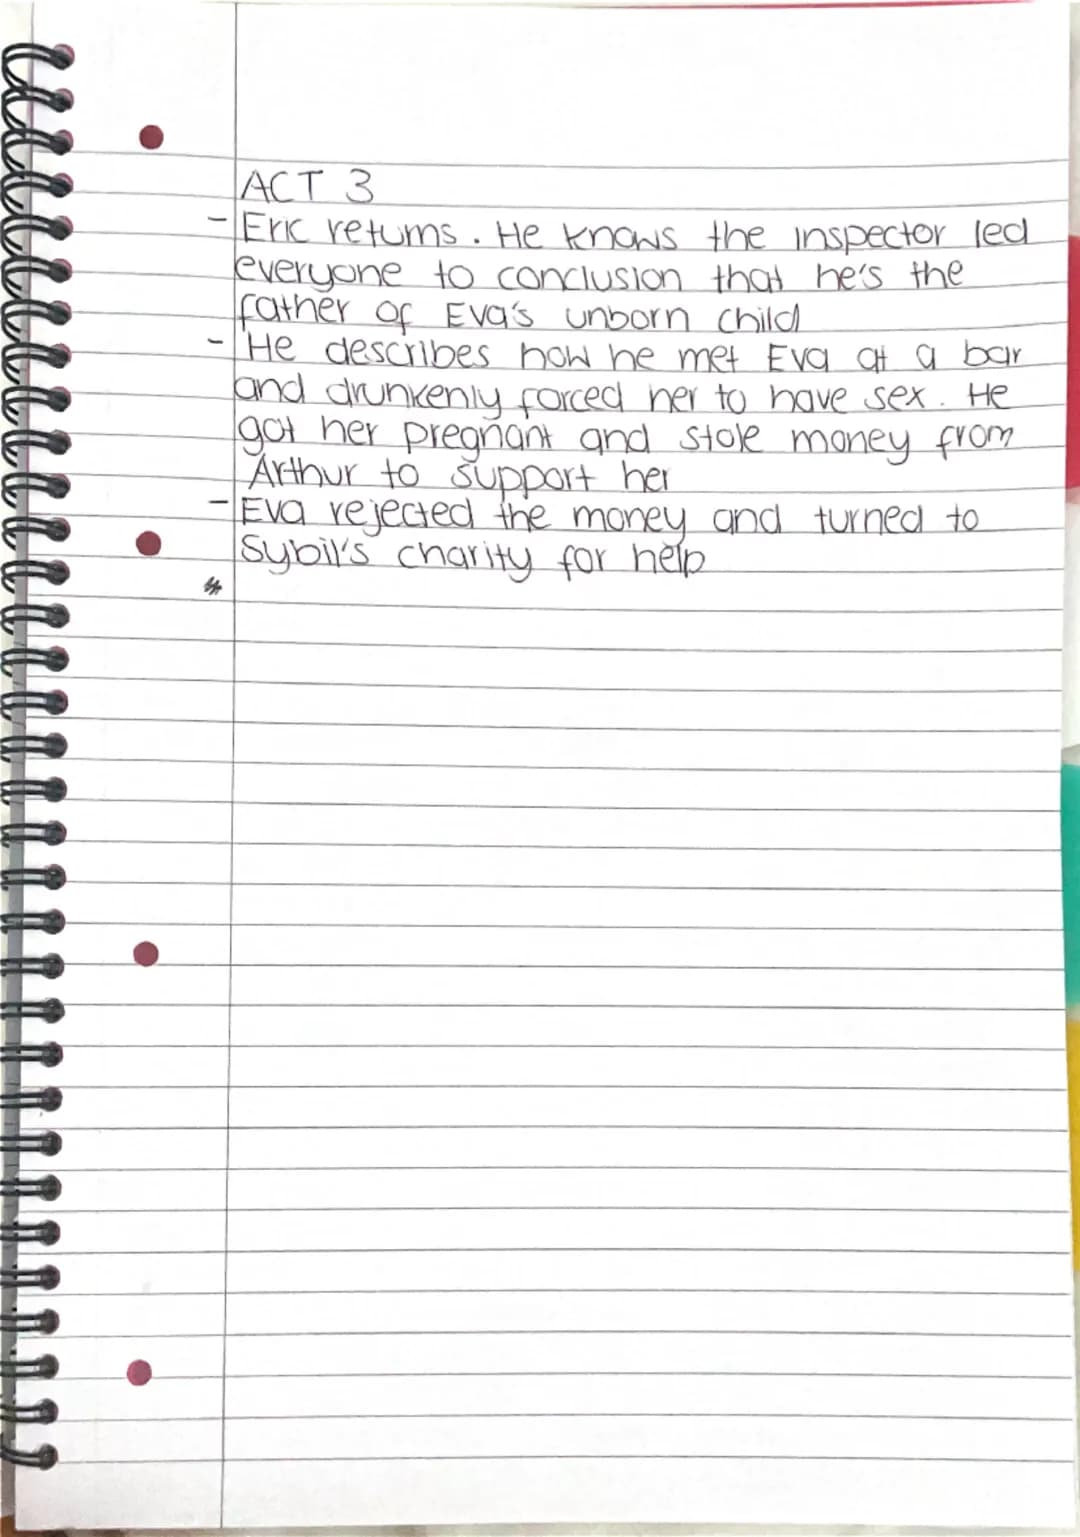 ACT 3
- Eric returns. He knows the inspector led
everyone to conclusion that he's the
father of Eva's unborn child
- He describes how he met Eva at a bar
and drunkenly forced her to have sex. He
got her pregnant and stole money from
Arthur to support her
- Eva rejected the money and turned to
Sybil's charity for help